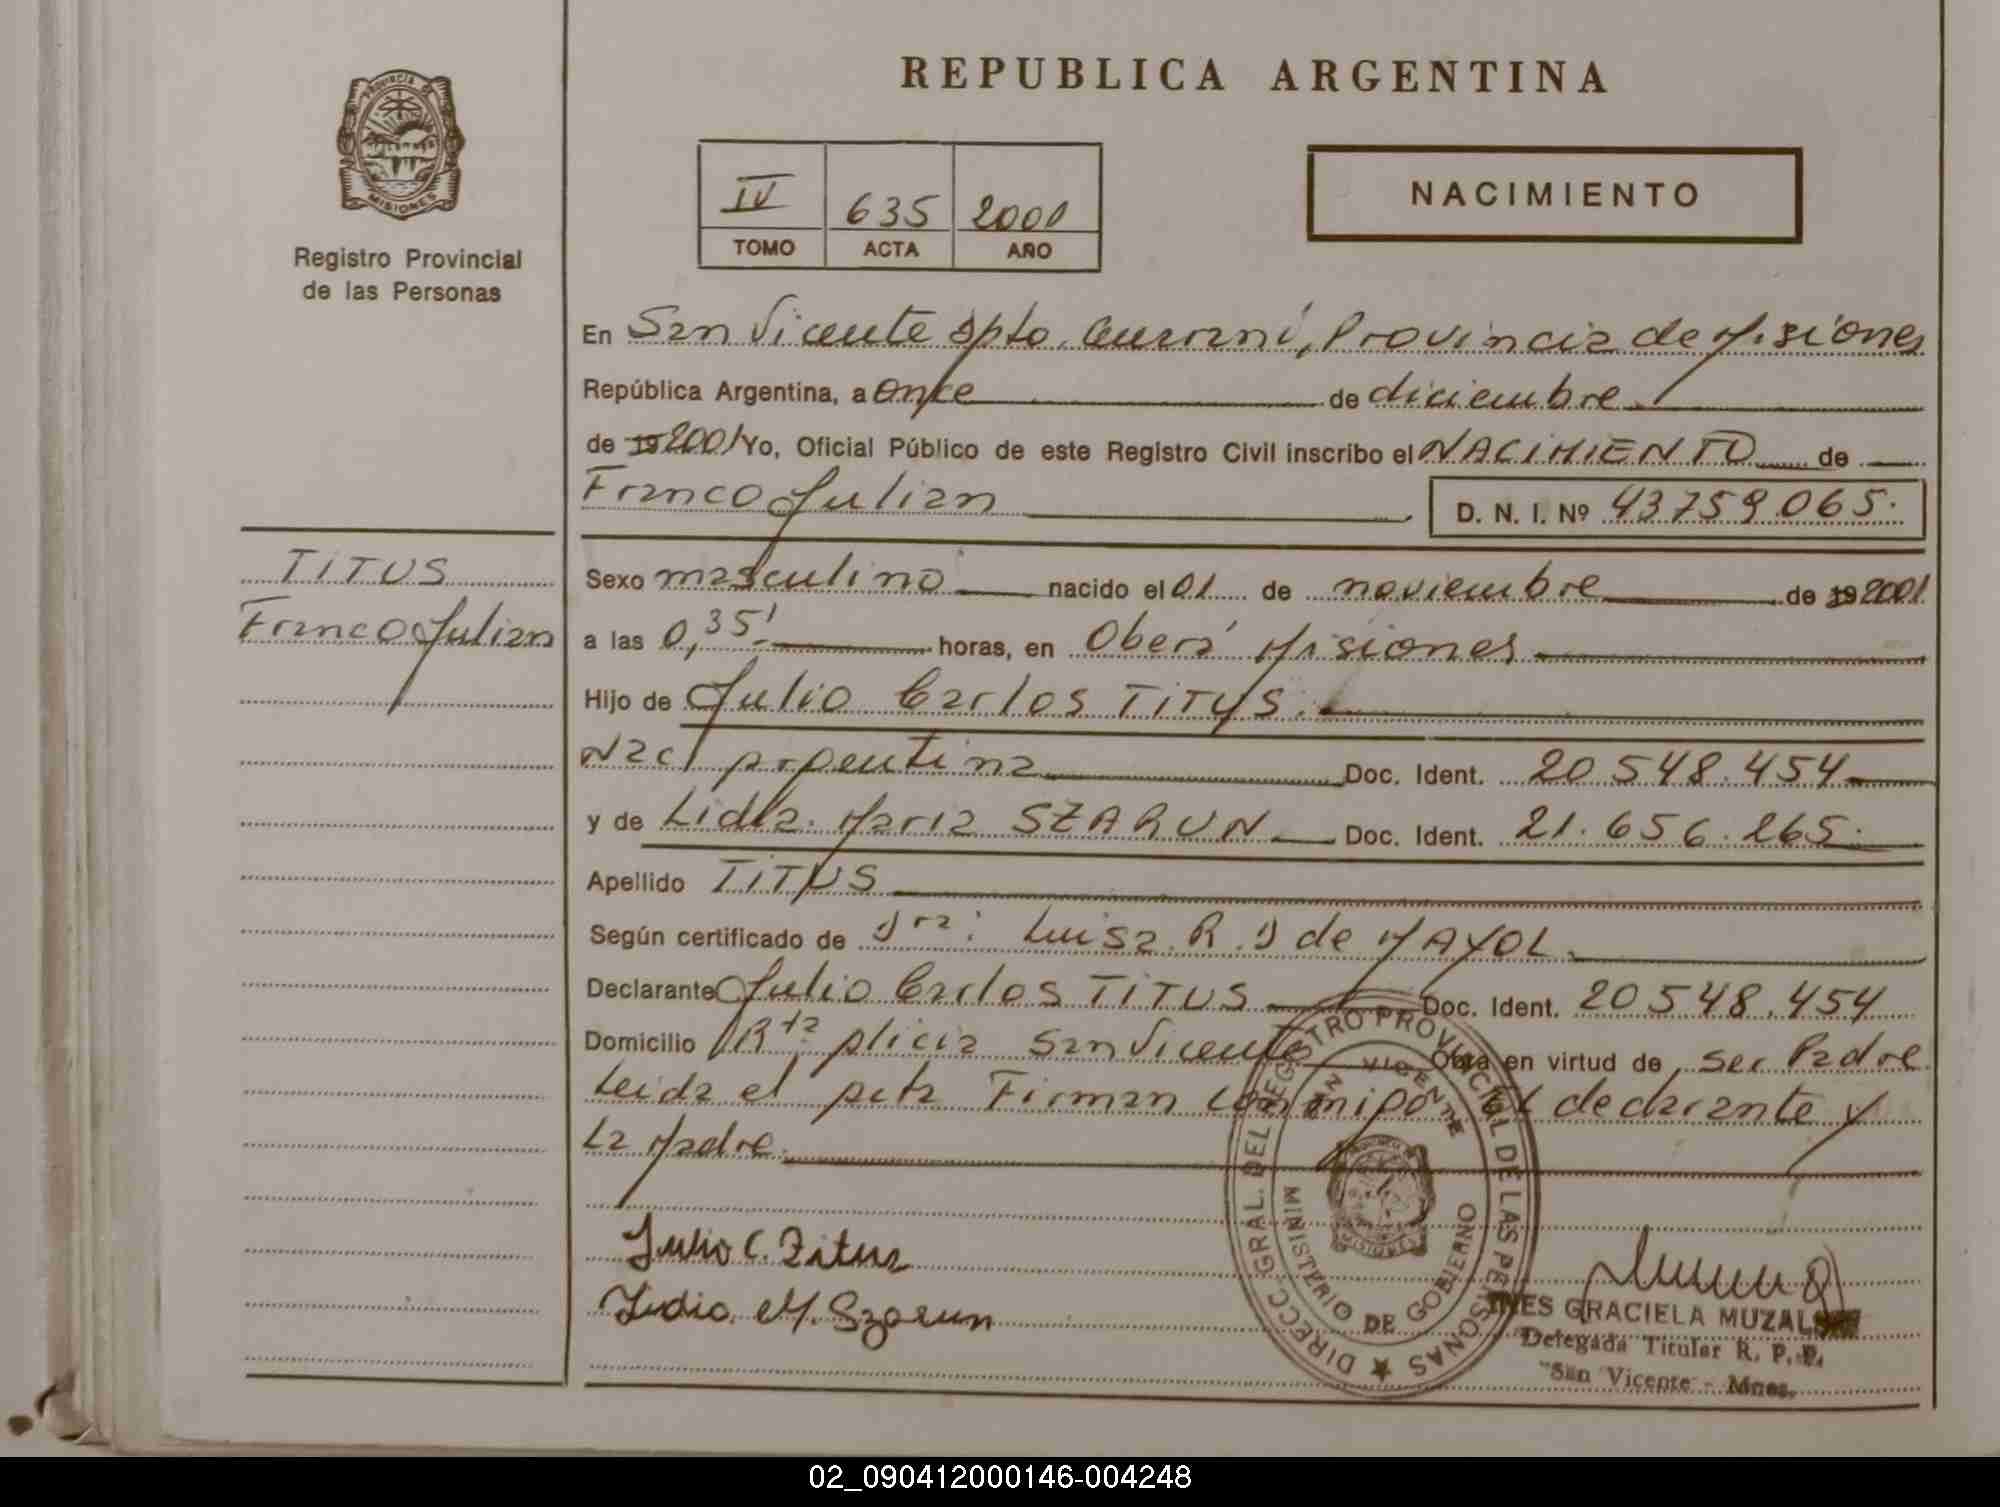 REPUBLICA ARGENTINA
PROVINCIA DE MISIONES
Registro Provincial
de las Personas
IV 635 2001
TOMO ACTA AÑO
NACIMIENTO
En San Vicente Dpto. Guaraní, Provincia de Misiones
República Argentina, a once de diciembre
de 19 2001 Yo, Oficial Público de este Registro Civil inscribo el NACIMIENTO de
Franco Julian
D. N. I. Nº 43759065.
TITUS
Franco Julian
Sexo masculino nacido el 01 de noviembre de 19 2001
a las 0,35' horas, en Oberá Misiones
Hijo de Julio Carlos TITUS.
Nac/ argentina Doc. Ident. 20.548.454
y de Lidia Maria SZARUN Doc. Ident. 21.656.265.
Apellido TITUS
Según certificado de Dra: Luisa R. D de MAYOL.
Declarante Julio Carlos TITUS Doc. Ident. 20548.454
Domicilio Rta plicia San Vicente Obra en virtud de ser Padre
Leida el acta Firman conmigo el declarante y
La Madre.
Julio C. Titus
Lidia M. Szarun
DIRECC. GRAL. DEL REGISTRO PROVINCIAL DE LAS PERSONAS
SAN VICENTE
MISIONES
MINISTERIO DE GOBIERNO
INES GRACIELA
Delegada Titular R. P. P.
"San Vicente - Mnes.
02_090412000146-004248